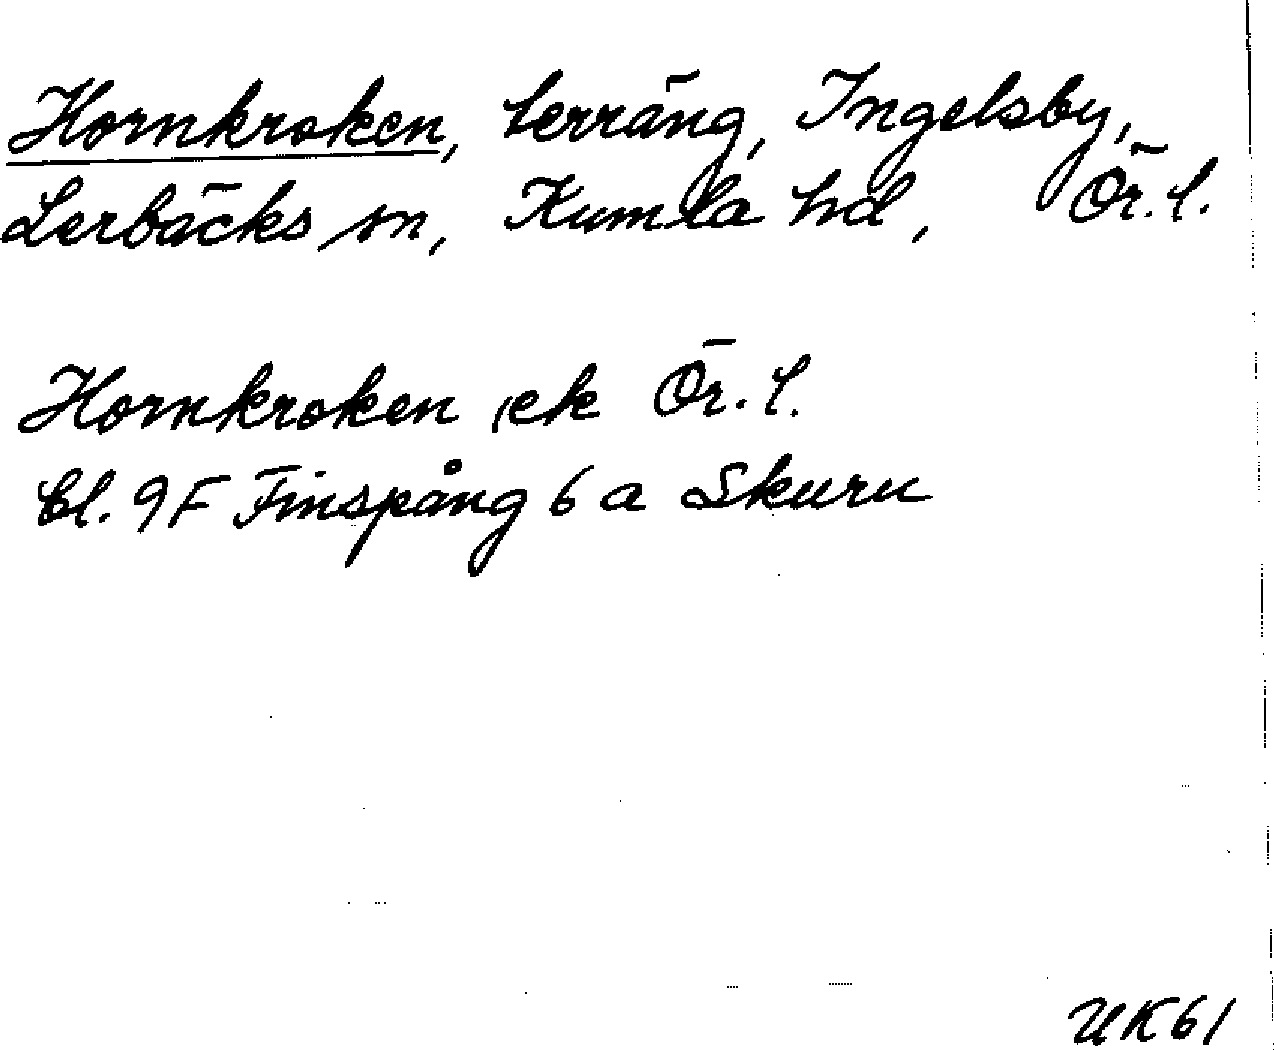 Hornkroken, terräng, Ingelsby,
Lerbäcks sn, Kumla hd, Ör. l.
Hornkroken, ek Ör. l.
bl. 9F Finspång 6 a Skuru
UK61